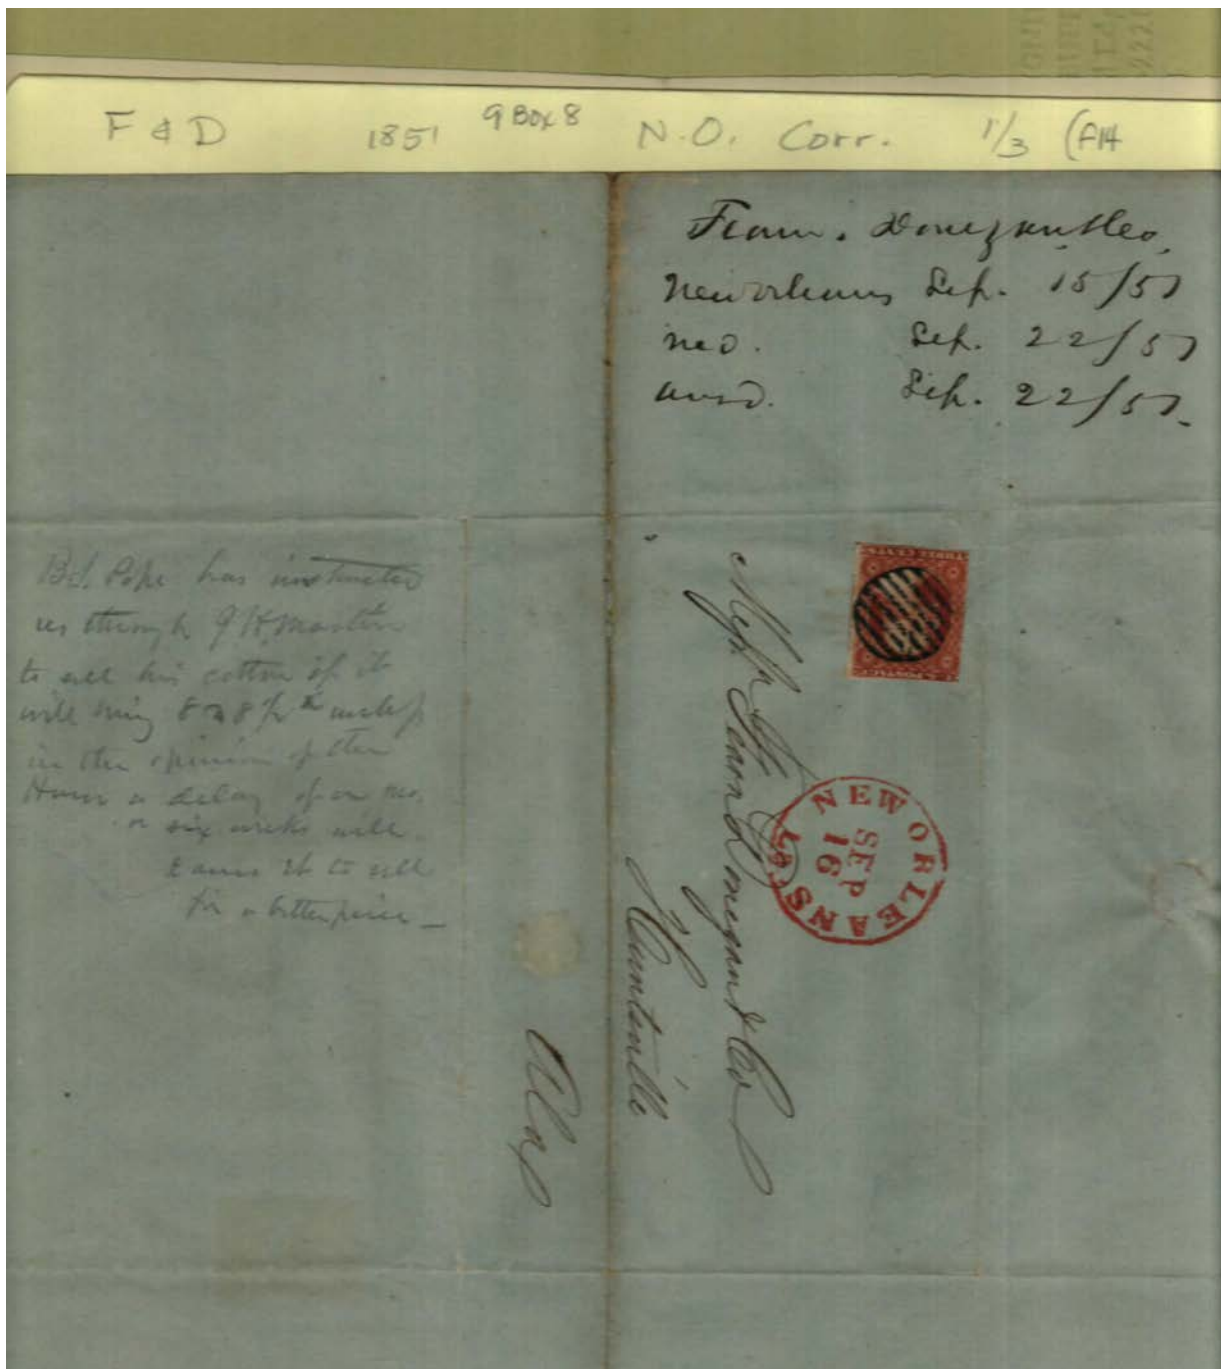 F & D 1851 9 Box 8 N.O. Corr. 1/3 (FH
Fearn. Donegan & Co.
New Orleans Sep. 15/51
recd. Sep. 22/51
ansd. Sep. 22/51.
Bd. Pope has instructed
us through J H Martin
to sell his cotton if it
will bring 8 a 8½
in the opinion of the
House a delay of a mo.
or six weeks will
cause it to sell
for a better price —
THREE CENTS
U.S. POSTAGE
NEW ORLEANS
SEP
16
Messrs Fearn Donegan & Co
Huntsville
Ala